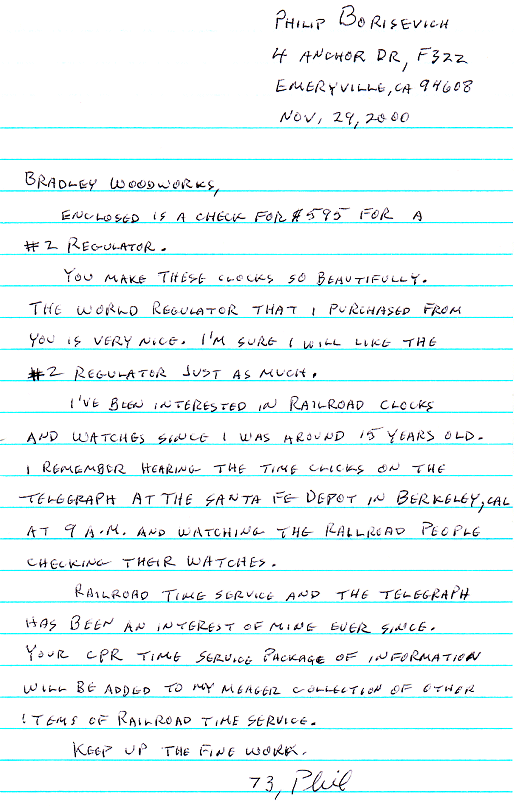 PHILIP BORISEVICH
4 ANCHOR DR, F322
EMERYVILLE, CA 94608
NOV. 29, 2000
BRADLEY WOODWORKS,
ENCLOSED IS A CHECK FOR $595 FOR A
#2 REGULATOR.
YOU MAKE THESE CLOCKS SO BEAUTIFULLY.
THE WORLD REGULATOR THAT I PURCHASED FROM
YOU IS VERY NICE. I'M SURE I WILL LIKE THE
#2 REGULATOR JUST AS MUCH.
I'VE BEEN INTERESTED IN RAILROAD CLOCKS
AND WATCHES SINCE I WAS AROUND 15 YEARS OLD.
I REMEMBER HEARING THE TIME CLICKS ON THE
TELEGRAPH AT THE SANTA FE DEPOT IN BERKELEY, CAL
AT 9 A.M. AND WATCHING THE RAILROAD PEOPLE
CHECKING THEIR WATCHES.
RAILROAD TIME SERVICE AND THE TELEGRAPH
HAS BEEN AN INTEREST OF MINE EVER SINCE.
YOUR CPR TIME SERVICE PACKAGE OF INFORMATION
WILL BE ADDED TO MY MEAGER COLLECTION OF OTHER
ITEMS OF RAILROAD TIME SERVICE.
KEEP UP THE FINE WORK.
73, Phil